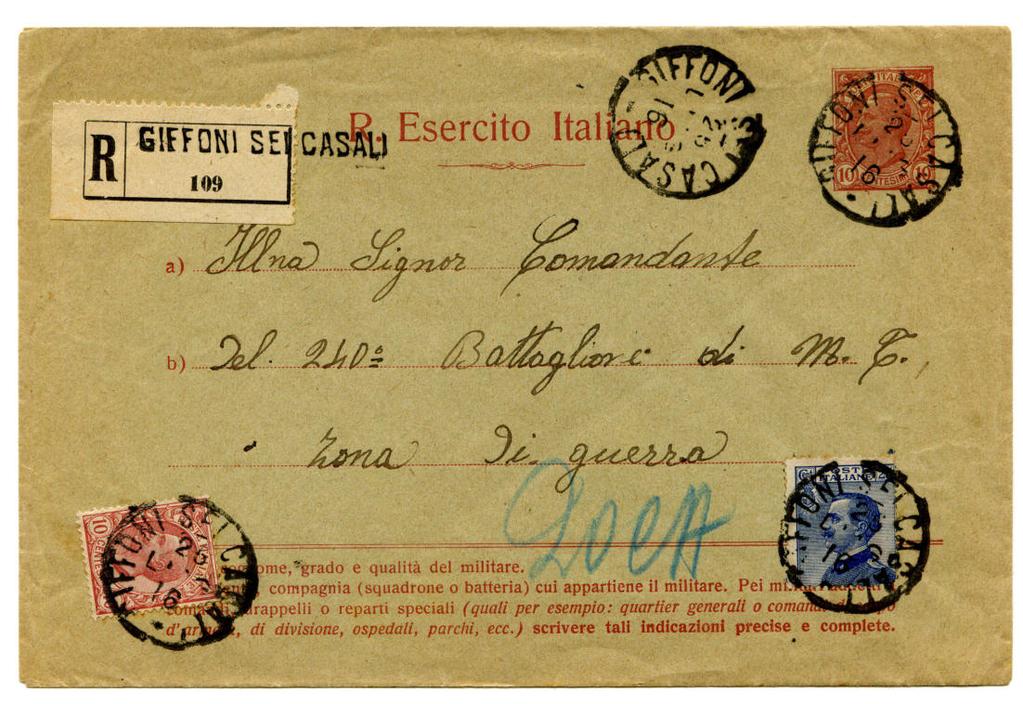 R GIFFONI SEI CASALI
109
R. Esercito Italiano
GIFFONI SEI CASALI
GIFFONI SEI CASALI
10 10
a) Illna Signor Comandante
b) Del. 240º Battaglione di M. T.,
Zona Di guerra
POSTE ITALIANE
GIFFONI SEI CASALI
10 CENT
GIFFONI SEI CASALI
nome, grado e qualità del militare.
compagnia (squadrone o batteria) cui appartiene il militare. Pei
drappelli o reparti speciali (quali per esempio: quartier generali o
d'armata, di divisione, ospedali, parchi, ecc.) scrivere tali indicazioni precise e complete.